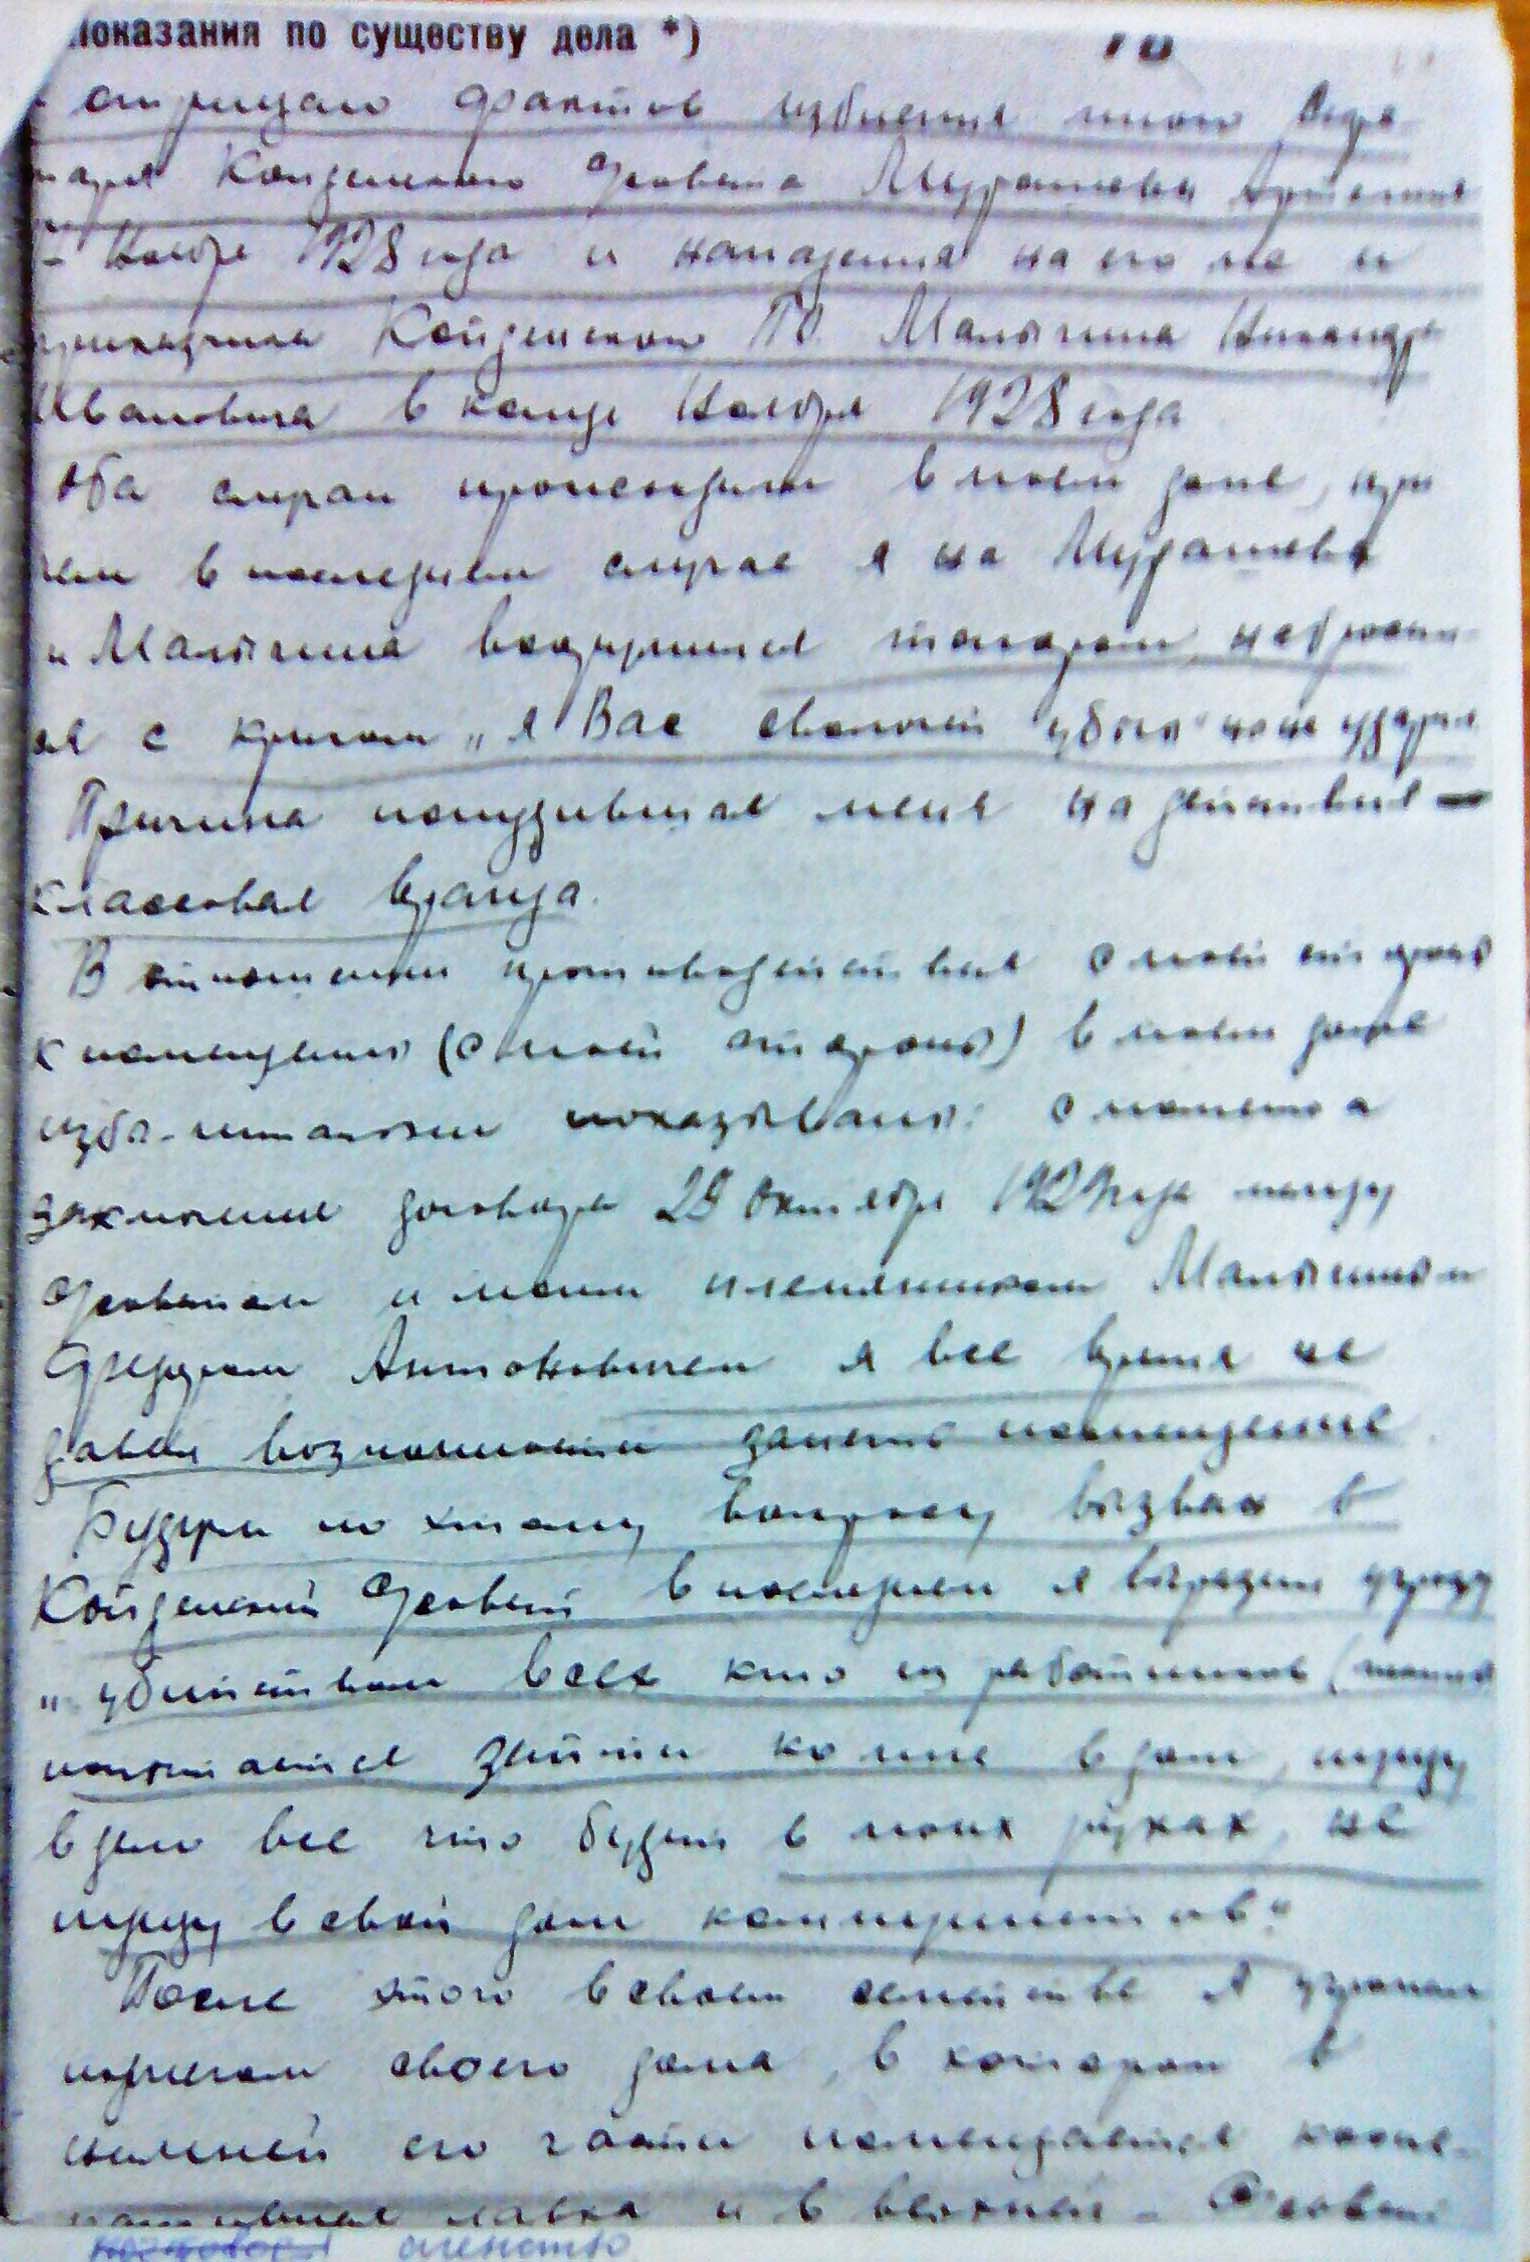 Показания по существу дела *)
отрицаю фактов избиения мною секре-
таря Койденского с/совета Мурашева Артемия
Ноября 1928 года и нападения на его же и
приказчика Койденского ПО. Малыгина Никандра
Ивановича в конце Ноября 1928 года
Оба случаи происходили в моем доме, при
чем в последнем случае я на Мурашева
и Малыгина вооружился топором, набросил-
ся с криком „я Вас сволочей убью" но не ударил
Причина понудившая меня на действие -
классовая вражда.
В отношении противодействия с моей стороны
к помещению (с моей стороны) в моем доме
избы-читальни показываю: с момента
заключения договора 28 Октября 1929 года между
с/советом и моим племянником Малыгиным
Федором Антоновичем я все время не
давал возможности занять помещение.
Будучи по этому вопросу вызван в
Койденский с/совет в последнем я выразил угрозу
„убийством всех кто из работников
попытается зайти ко мне в дом, пущу
в дело все что будет в моих руках, не
пущу в свой дом коммунистов"
После этого в своем семействе я угрожал
поджогом своего дома, в котором в
нижней его части помещается коопе-
ративная лавка и в верхней - с/совет
агентство